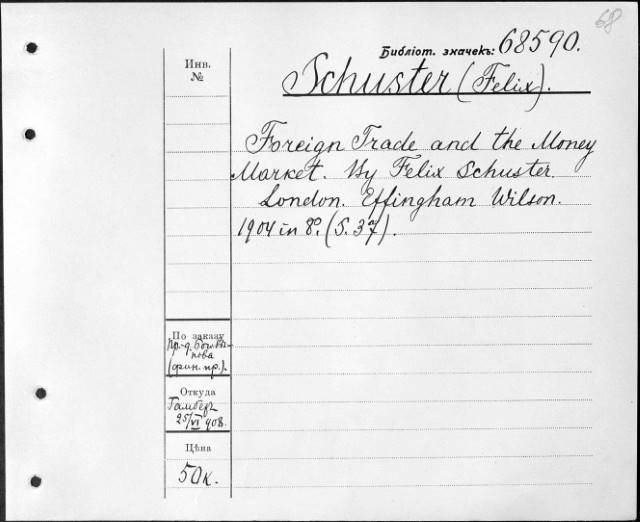 68
Библіот. значекъ: 68590.
Инв.
№
Schuster (Felix).
Foreign Trade and the Money
Market. By Felix Schuster.
London. Effingham Wilson.
1904 in 8º. (S. 37).
По заказу
пр.
(фин. пр.).
Откуда
25/VI 908.
Цѣна
50 к.